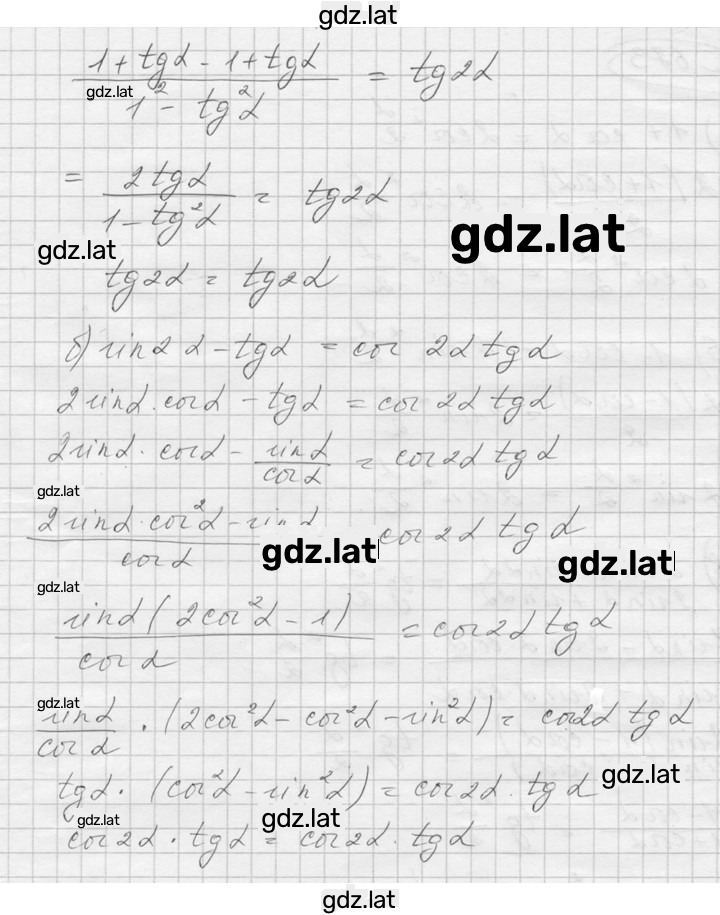 gdz.lat
1 + tgα - 1 + tgα / 1² - tg²α = tg2α
gdz.lat
= 2tgα / 1 - tg²α = tg2α
gdz.lat
gdz.lat
tg2α = tg2α
б) sin2α - tgα = cos 2α tgα
2sinα · cosα - tgα = cos 2α tgα
2sinα · cosα - sinα / cosα = cos2α tgα
gdz.lat
2sinα · cos²α - sinα / cosα cos2α tgα
gdz.lat
gdz.lat
gdz.lat
sinα (2cos²α - 1) / cosα = cos2α tgα
gdz.lat
sinα / cosα · (2cos²α - cos²α - sin²α) = cos2α tgα
tgα · (cos²α - sin²α) = cos2α · tgα
gdz.lat
gdz.lat
gdz.lat
cos2α · tgα = cos2α · tgα
gdz.lat